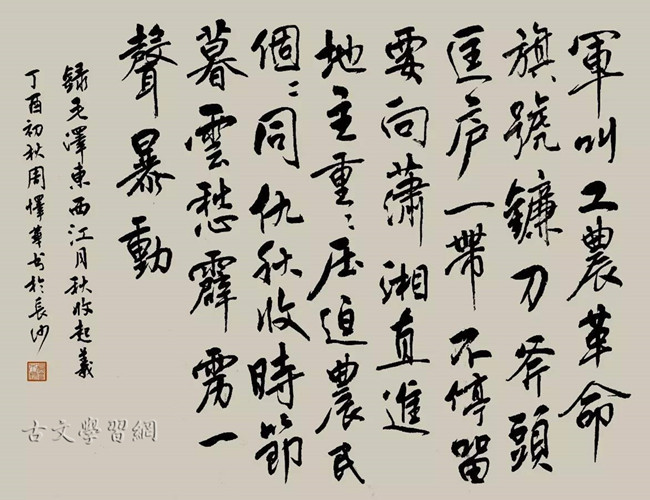 軍叫工農革命
旗號鐮刀斧頭
匡庐一帶不停留
要向蕭湘直進
地主重〻压迫農民
個〻同仇秋收時節
暮雲愁霹雳一
聲暴動
錄毛澤東西江月秋收起義
丁酉初秋周懌華书於長沙
古文學習網